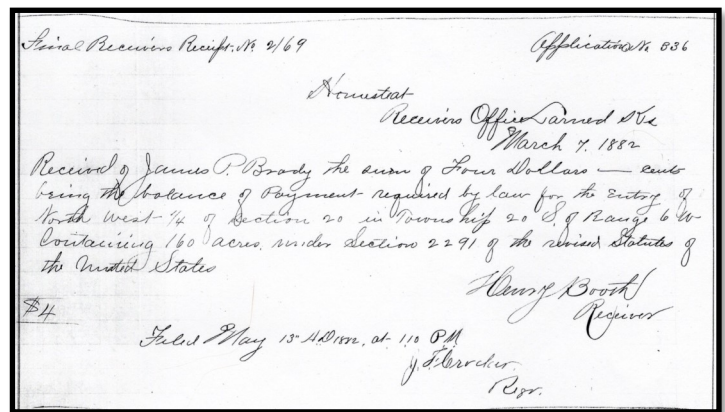 Final Receivers Receipt. No 2169 Application No 336
Homestead
Receivers Office Larned Ks
March 7. 1882
Received of James P. Brady the sum of Four Dollars — cents
being the balance of Payment required by law for the Entry of
North West 1/4 of Section 20 in Township 20 S. of Range 6 W
Containing 160 acres, under Section 2291 of the revised Statutes of
the United States
Henry Booth
Receiver
$4
Filed May 13 A.D. at 1 10 P.M
Regr.